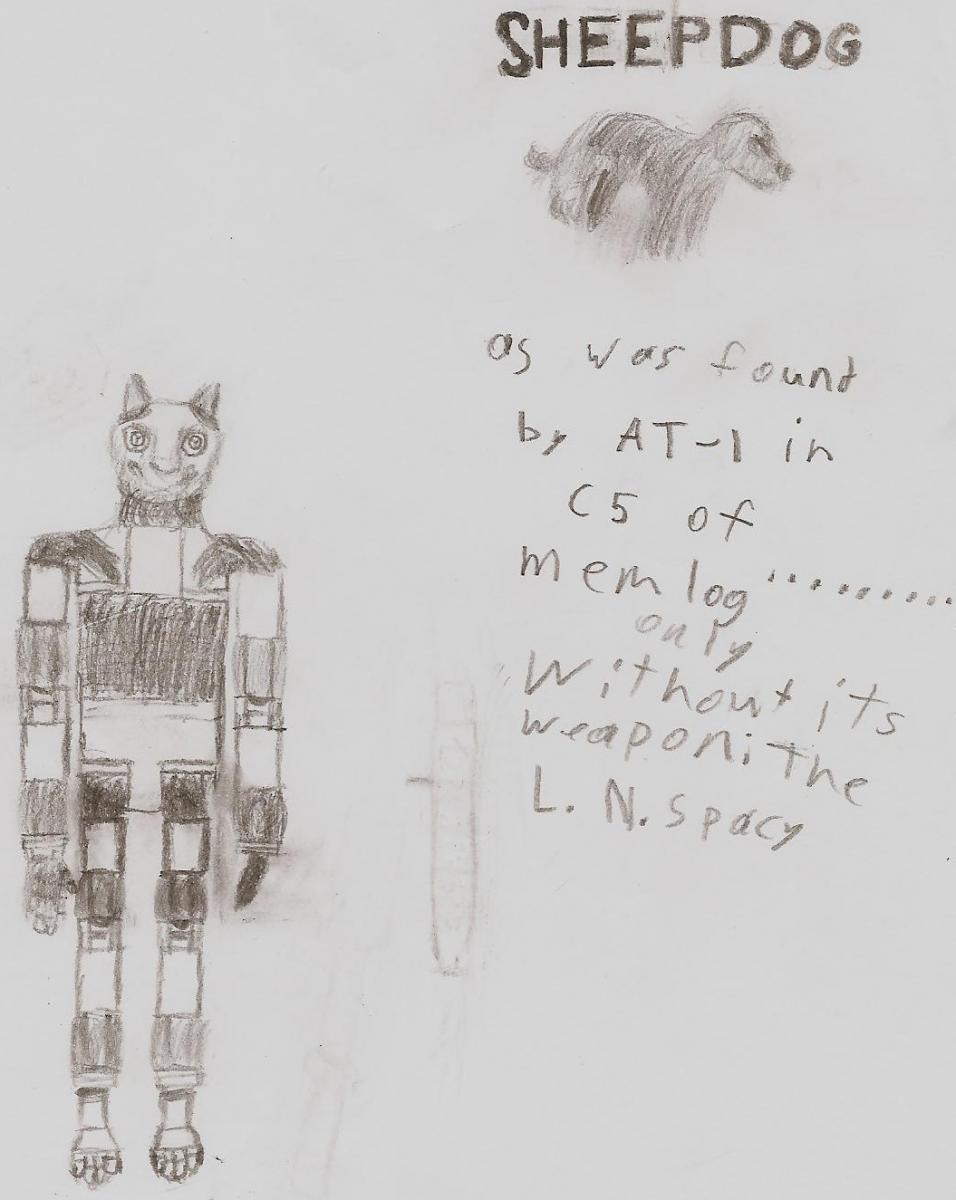 SHEEPDOG
as was found
by AT-1 in
C5 of
memlog ..........
only
Without its
weapon; the
L. N. Spacy